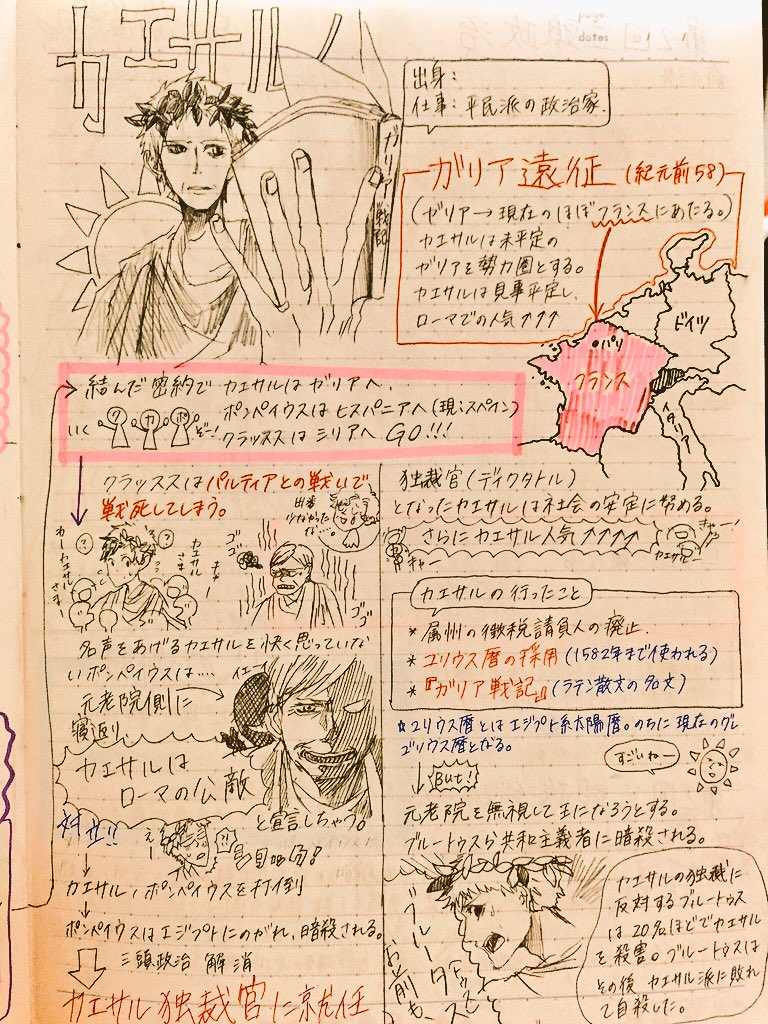 カエサル
page.
dates
出身:
仕事:平民派の政治家.
ガリア戦記
ガリア遠征(紀元前58)
(ガリア→現在のほぼフランスにあたる。)
カエサルは未平定の
ガリアを勢力圏とする。
カエサルは見事平定し、
ローマでの人気↑↑↑
ドイツ
パリ
フランス
イタリア
結んだ密約で カエサルは ガリアへ、
ポンペイウスは ヒスパニアへ(現:スペイン)
クラッススは シリアへ GO!!!
いく
ク カ ポ
ぞー!
クラッススはパルティアとの戦いで
戦死してしまう。
出番
少なかった
な…。
わーカエサル
さまー
?
?
カエサル
さま
きゃー
ゴゴ
ゴゴ
名声をあげるカエサルを快く思っていな
いポンペイウスは……
イエーイ
元老院側に
寝返り、
カエサルは
ローマの公敵
と宣言しちゃう。
対立!!
えー
↓
カエサル、ポンペイウスを打倒
↓
ポンペイウスはエジプトにのがれ、暗殺される。
三頭政治 解消
カエサル 独裁官に就任
独裁官(ディクタトル)
となったカエサルは社会の安定に努める。
さらにカエサル人気↑↑↑↑
きゃー
きゃー!
カエサルの行ったこと
* 属州の徴税請負人の廃止.
* ユリウス暦の採用(1582年まで使われる)
* 『ガリア戦記』(ラテン散文の名文)
☆ユリウス暦とはエジプト系太陽暦。のちに現在のグレ
ゴリウス暦となる。
↓ But!
すごいねー
元老院を無視して王になろうとする。
ブルートゥスら共和主義者に暗殺される。
ブルータス
お前も、
カエサルの独裁に
反対するブルートゥス
は20名ほどでカエサル
を殺害。ブルートゥスは
その後カエサル派に敗れ
て自殺した。